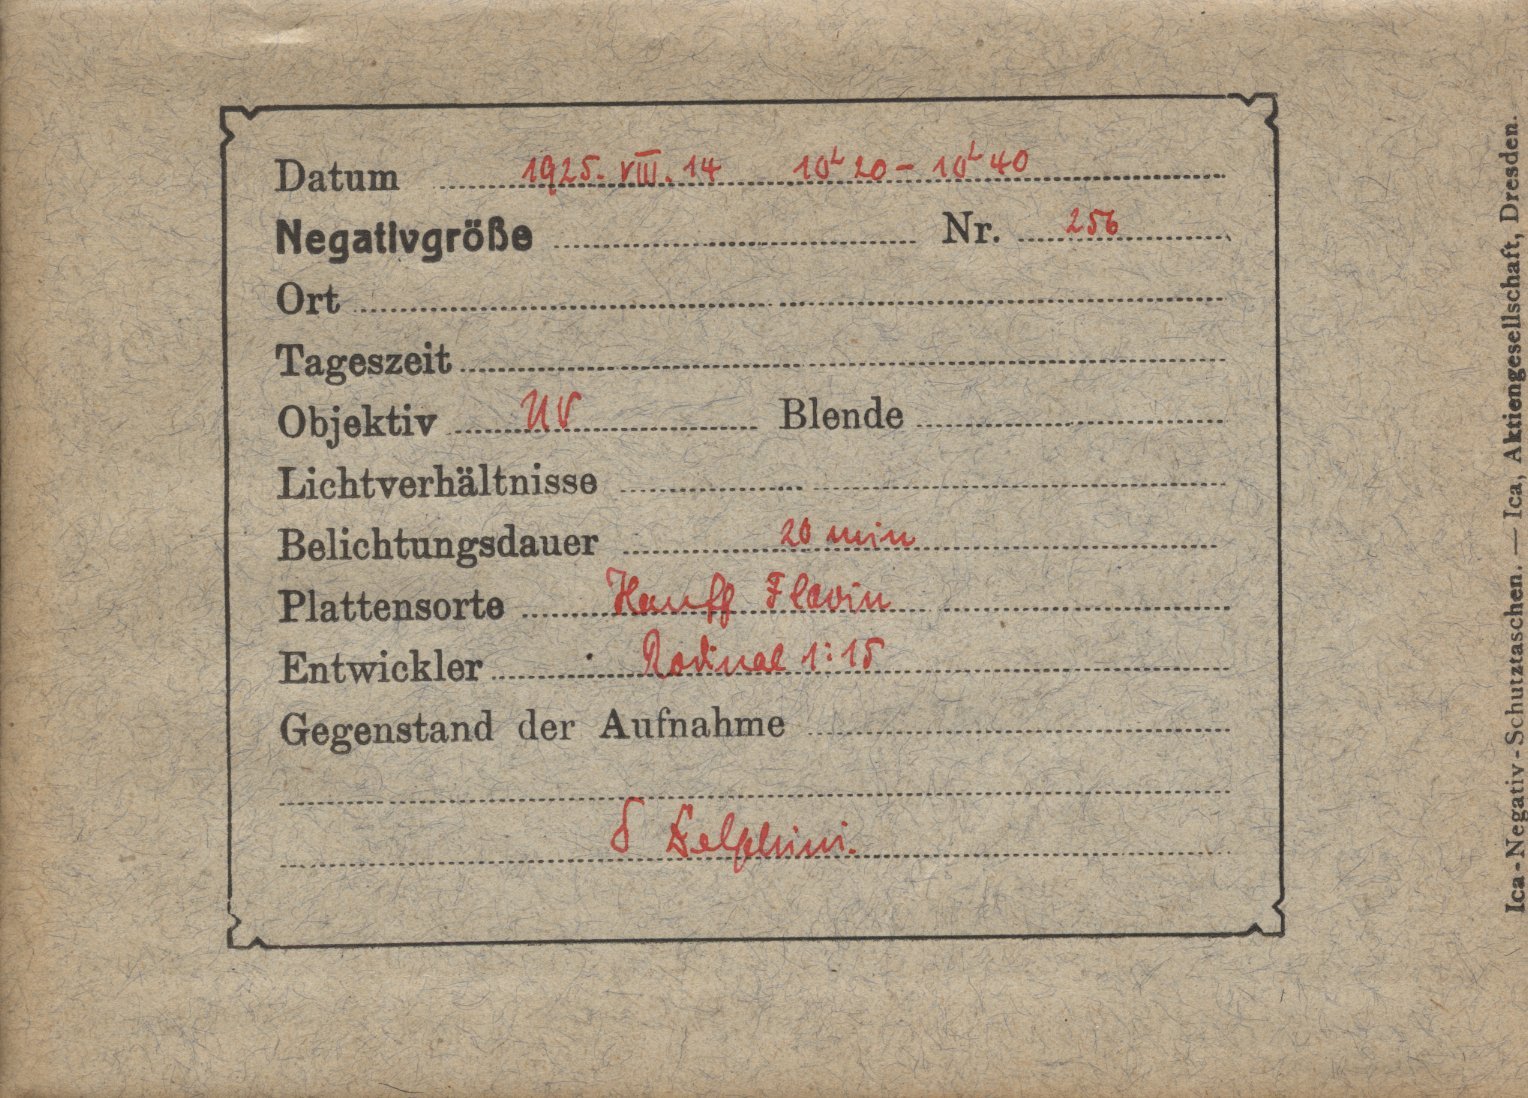 Datum 1925. VIII. 14 10h 20 - 10h 40
Negativgröße Nr. 256
Ort
Tageszeit
Objektiv UV Blende
Lichtverhältnisse
Belichtungsdauer 20 min
Plattensorte Hauff Flavin
Entwickler Rodinal 1:15
Gegenstand der Aufnahme
δ Delphini.
Ica-Negativ-Schutztaschen. — Ica, Aktiengesellschaft, Dresden.